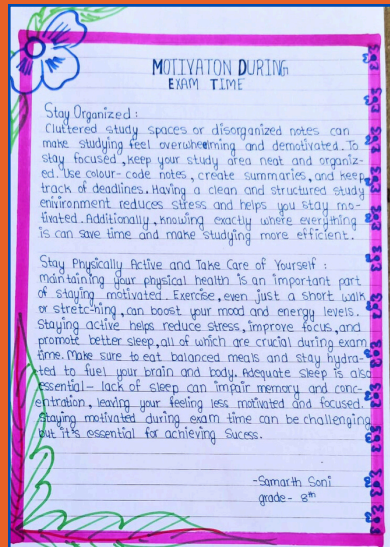 MOTIVATON DURING
EXAM TIME
Stay Organized :
Cluttered study spaces or disorganized notes can
make studying feel overwhelming and demotivated. To
stay focused, keep your study area neat and organiz-
ed. Use colour-code notes, create summaries, and keep
track of deadlines. Having a clean and structured study
environment reduces stress and helps you stay mo-
tivated. Additionally, knowing exactly where everything
is can save time and make studying more efficient.
Stay Physically Active and Take Care of Yourself :
maintaining your physical health is an important part
of staying motivated. Exercise, even just a short walk
or stretc-hing, can boost your mood and energy levels.
Staying active helps reduce stress, improve focus, and
promote better sleep, all of which are crucial during exam
time. Make sure to eat balanced meals and stay hydra-
ted to fuel your brain and body. Adequate sleep is also
essential- lack of sleep can impair memory and conc-
entration, leaving your feeling less motivated and focused.
Staying motivated during exam time can be challenging
but it's essential for achieving Sucess.
-Samarth Soni
grade- 8th